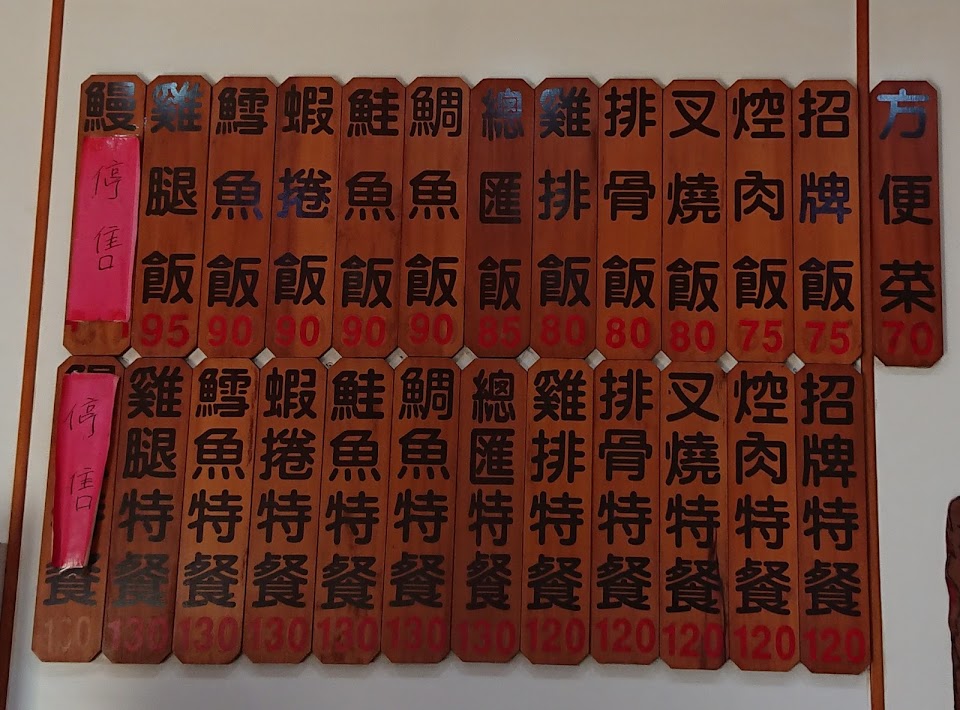 方便菜 70
招牌飯 75
焢肉飯 75
叉燒飯 80
排骨飯 80
雞排飯 80
總匯飯 85
鯛魚飯 90
鮭魚飯 90
蝦捲飯 90
鱈魚飯 90
雞腿飯 95
鰻
停售
招牌特餐 120
焢肉特餐 120
叉燒特餐 120
排骨特餐 120
雞排特餐 120
總匯特餐 130
鯛魚特餐 130
鮭魚特餐 130
蝦捲特餐 130
鱈魚特餐 130
雞腿特餐 130
停售
餐